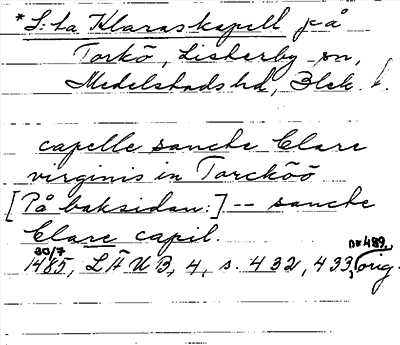 *S:ta Klaras kapell på
Torkö, Listerby sn,
Medelstads hd, Blek.
capelle sancte Clare
virginis in Torcköö
[På baksidan:] -- sancte
Clare capil.
30/7 nr 489,
1485, LÄU B, 4, s. 432, 433, orig.